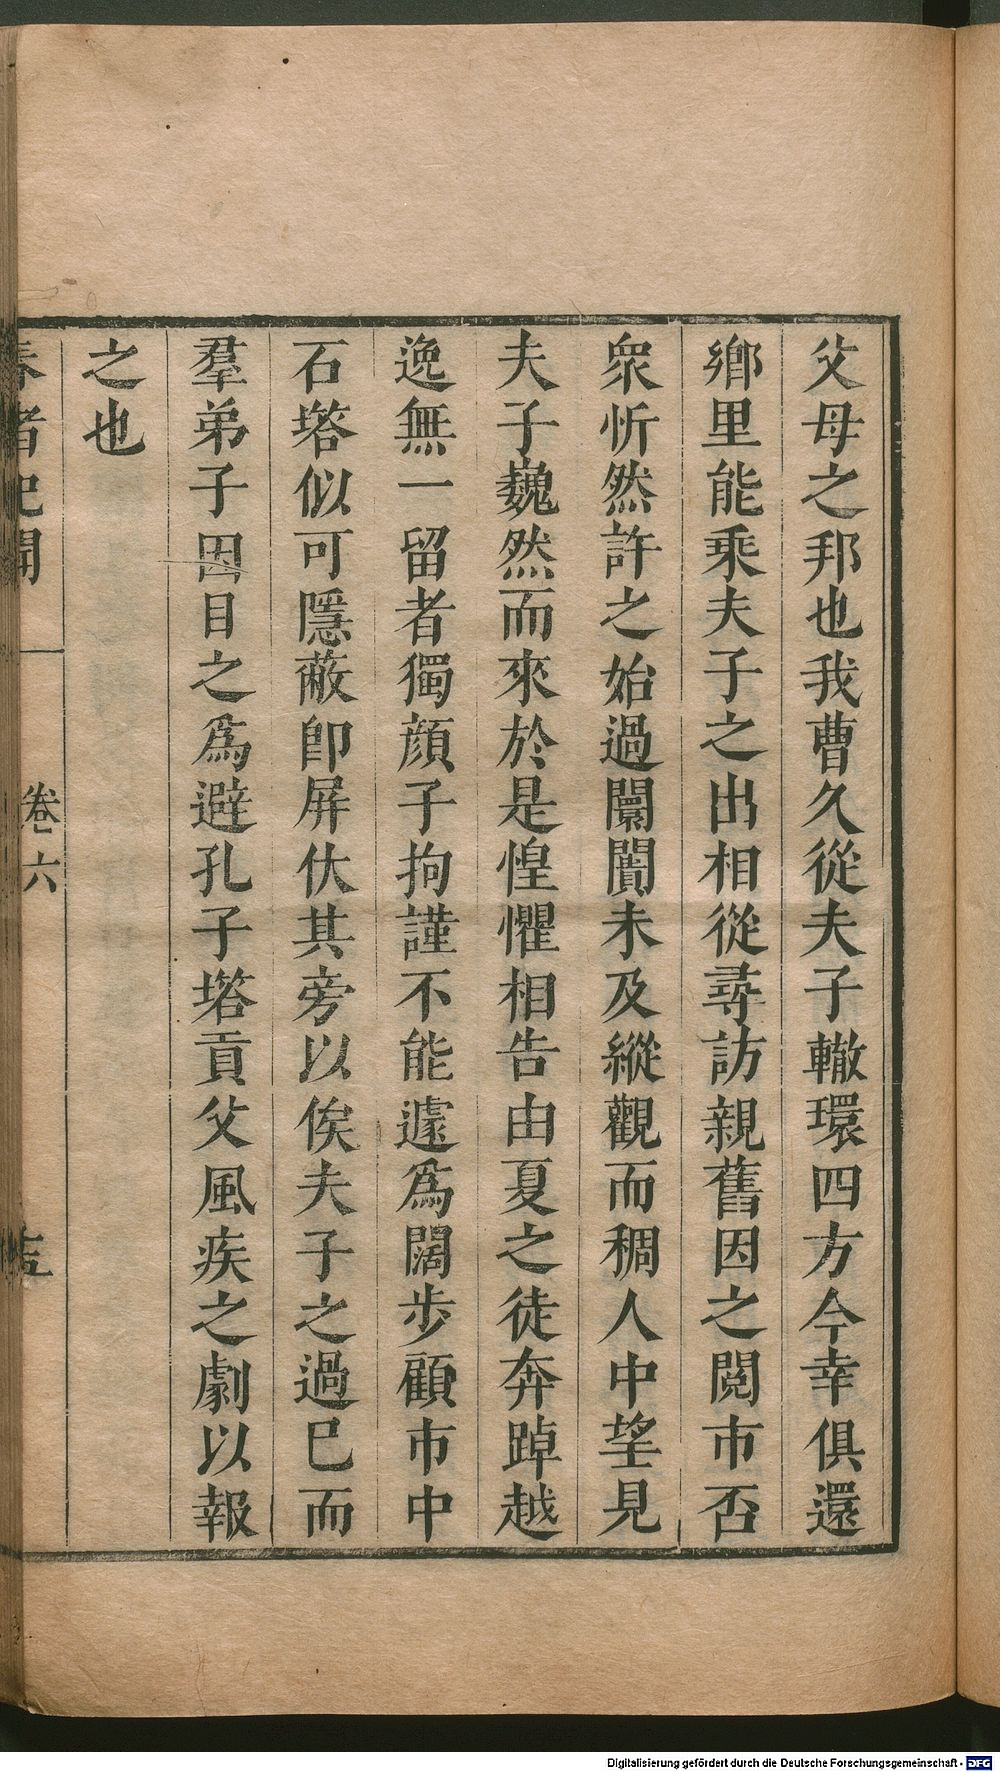 父母之邦也我曹久從夫子轍環四方今幸俱還
鄉里能乘夫子之出相從尋訪親舊因之閱市否
衆忻然許之始過闤闠未及縱觀而稠人中望見
夫子巍然而來於是惶懼相告由夏之徒奔踔越
逸無一留者獨顏子拘謹不能遽為闊步顧市中
石塔似可隱蔽卽屏伏其旁以俟夫子之過已而
羣弟子因目之為避孔子塔貢父風疾之劇以報
之也
春渚紀聞 卷六
Digitalisierung gefördert durch die Deutsche Forschungsgemeinschaft - DFG